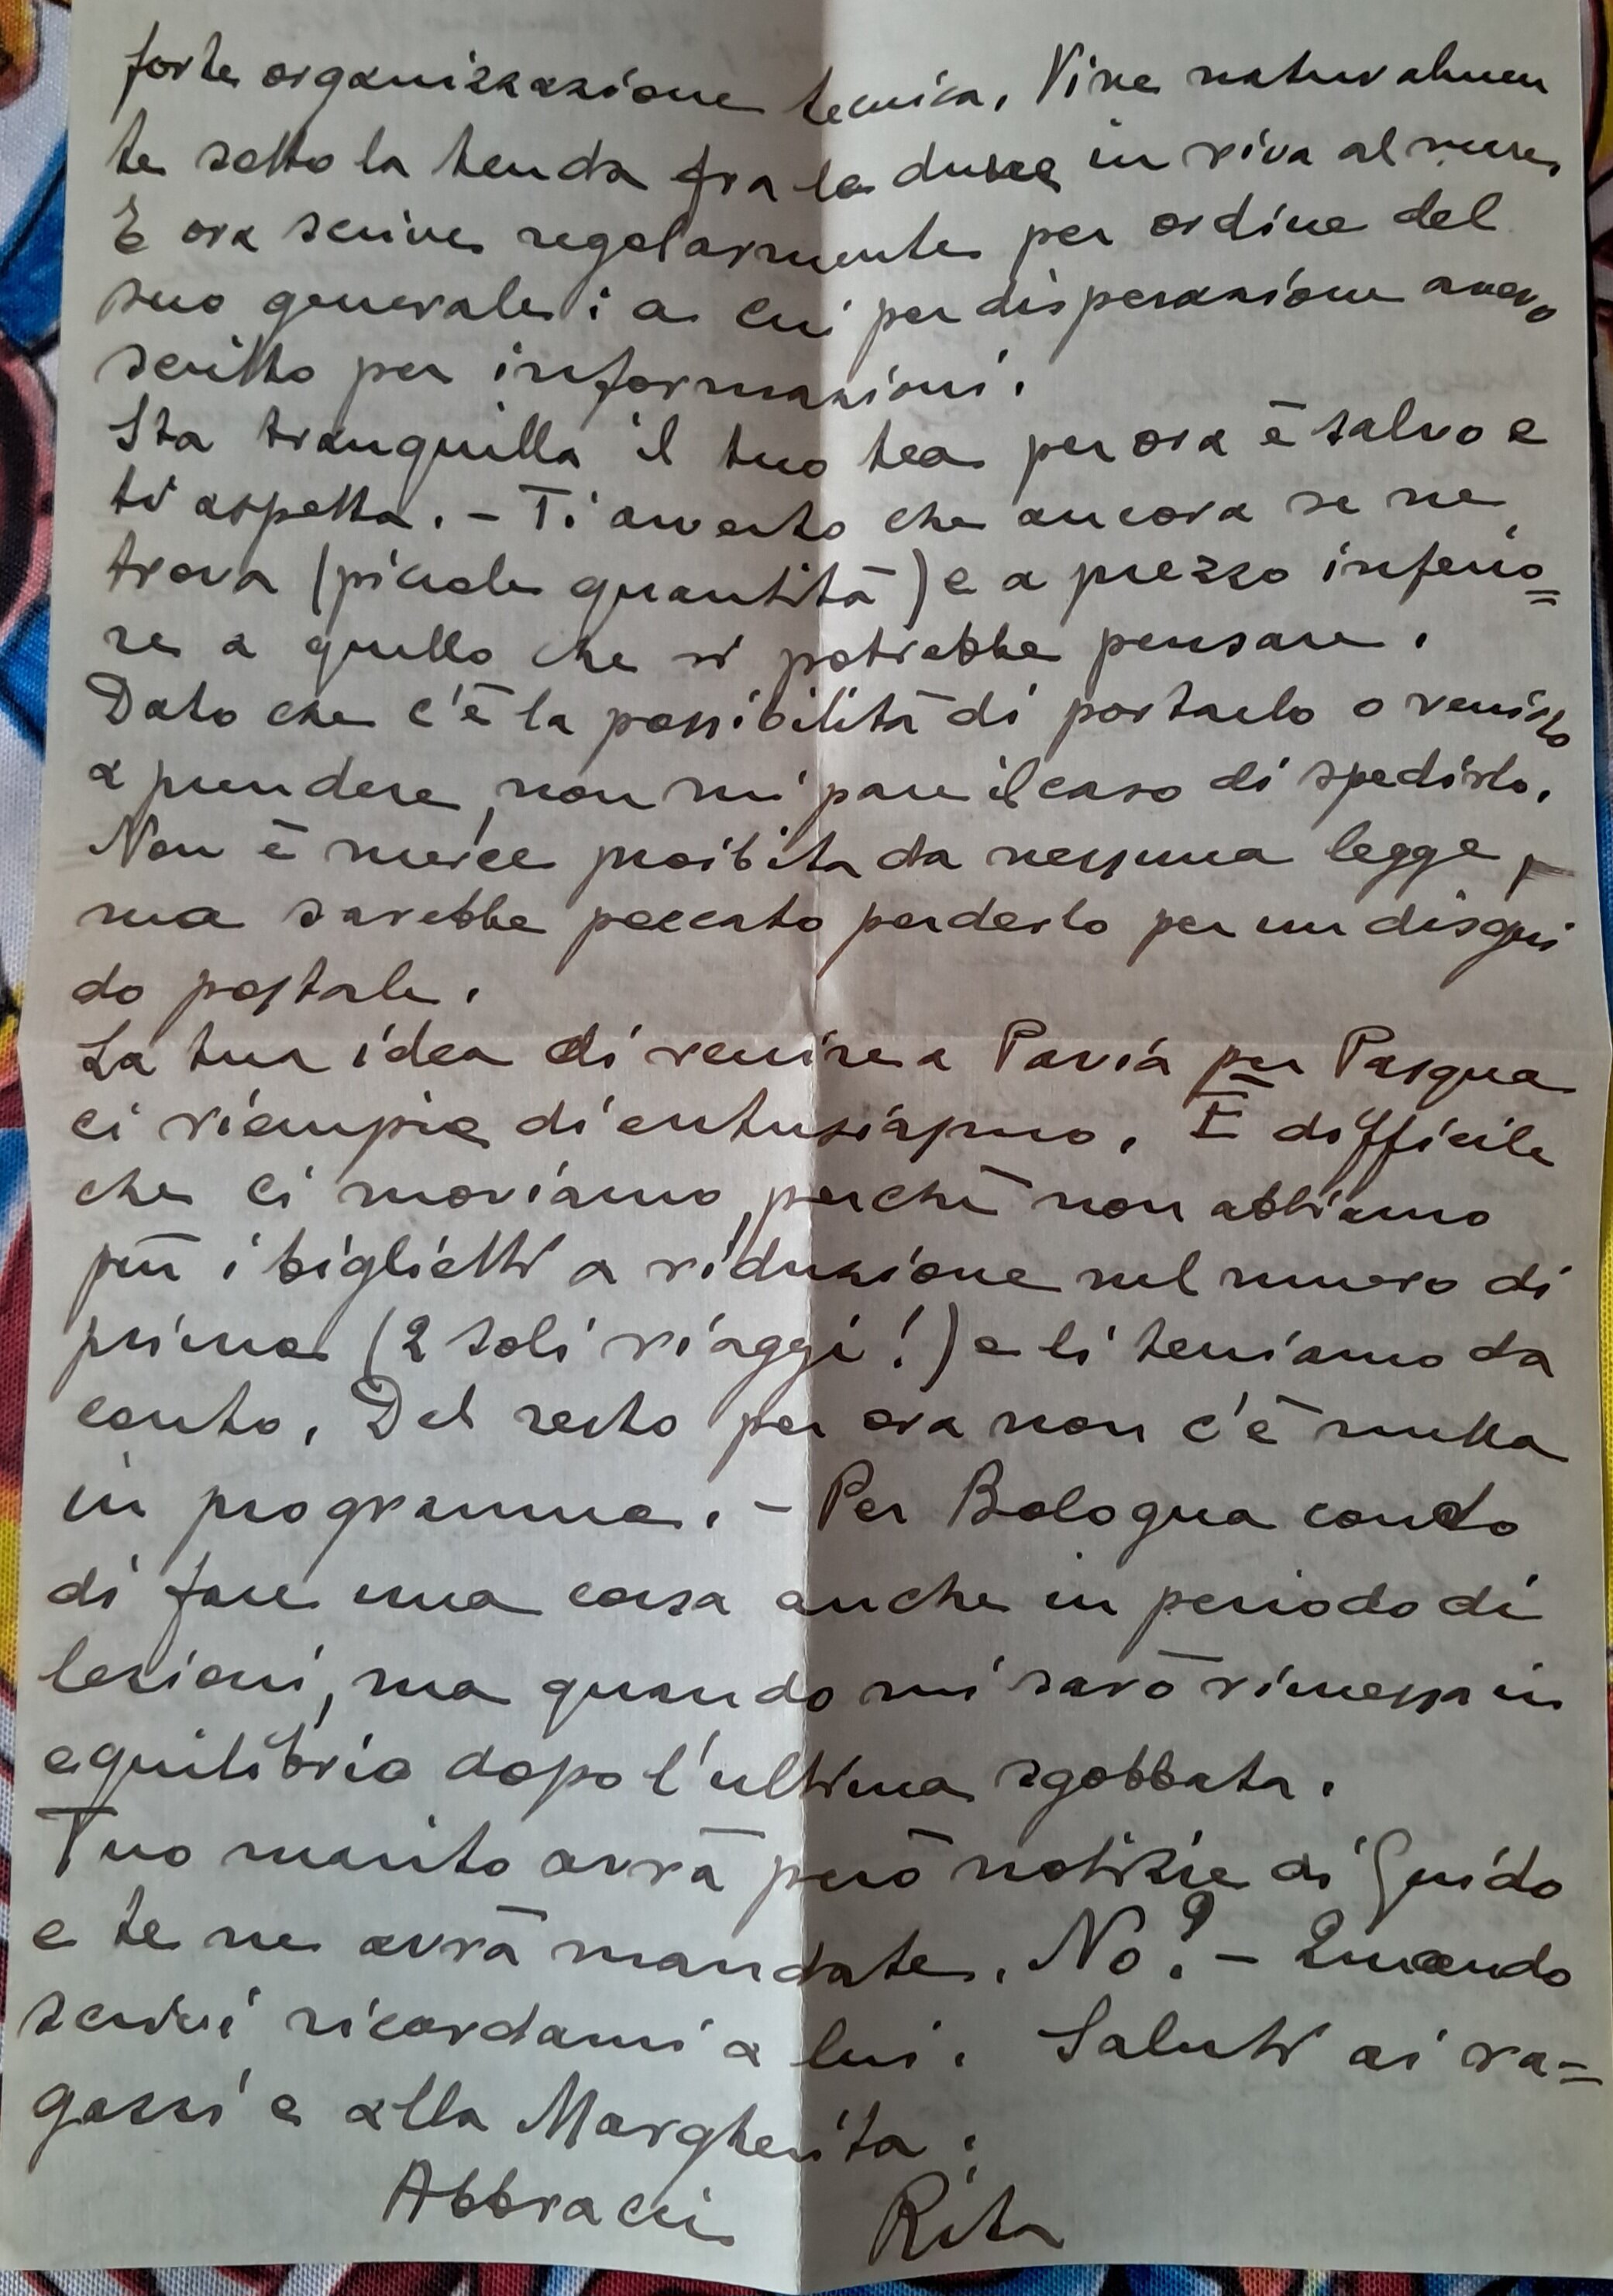 forte organizzazione tecnica. Vive naturalmen
te sotto la tenda fra le dune in riva al mare,
E ora scrive regolarmente per ordine del
suo generale: a cui per disperazione avevo
scritto per informazioni.
Sta tranquilla il tuo tea per ora ē salvo e
ti aspetta. - Ti avverto che ancora se ne
trova (piccole quantitā) e a prezzo inferio=
re a quello che si potrebbe pensare.
Dato che c'ē la possibilitā di portarlo o venirlo
a prendere, non mi pare il caso di spedirlo.
Non ē merce proibita da nessuna legge,
ma sarebbe peccato perderlo per un disgui
do postale.
La tua idea di venire a Pavia per Pasqua
ci riempie di entusiasmo. Ē difficile
che ci moviamo, perchē non abbiamo
piū i biglietti a riduzione nel numero di
prima (2 soli viaggi!) e li teniamo da
conto. Del resto per ora non c'ē nulla
in programma. - Per Bologna conto
di fare una corsa anche in periodo di
lezioni, ma quando mi sarō rimessa in
equilibrio dopo l'ultima sgobbata.
Tuo marito avrā perō notizie di Guido
e te ne avrā mandate. No? - Quando
scrivi ricordami a lui. Saluti ai ra=
gazzi e alla Margherita.
Abbracci Rita